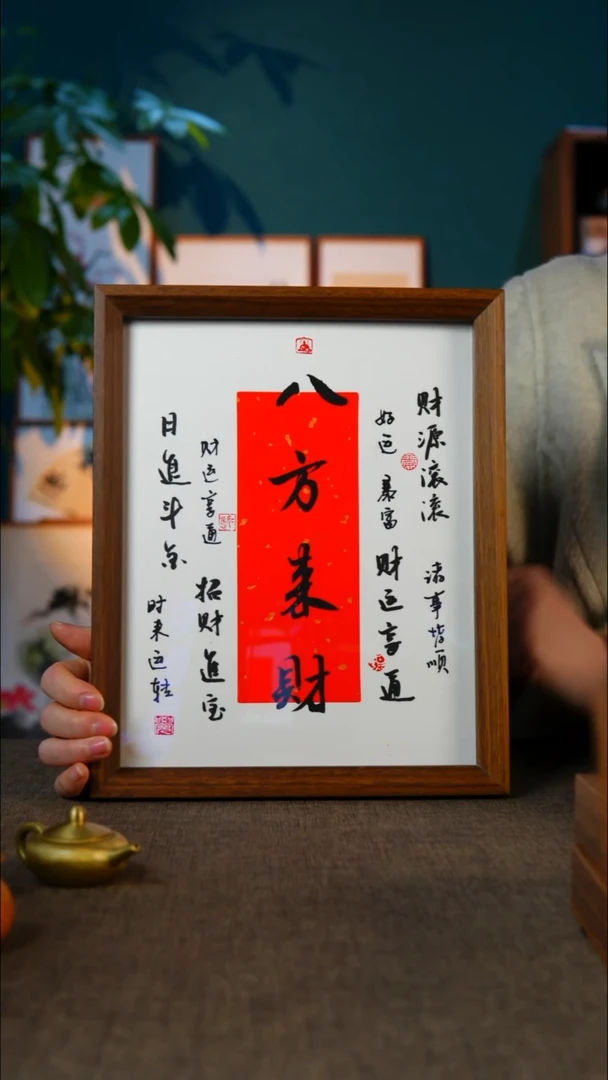 财源滚滚 诸事皆顺
好运 暴富 财运享通
八方来财
财运享通 招财进宝
日进斗金 时来运转